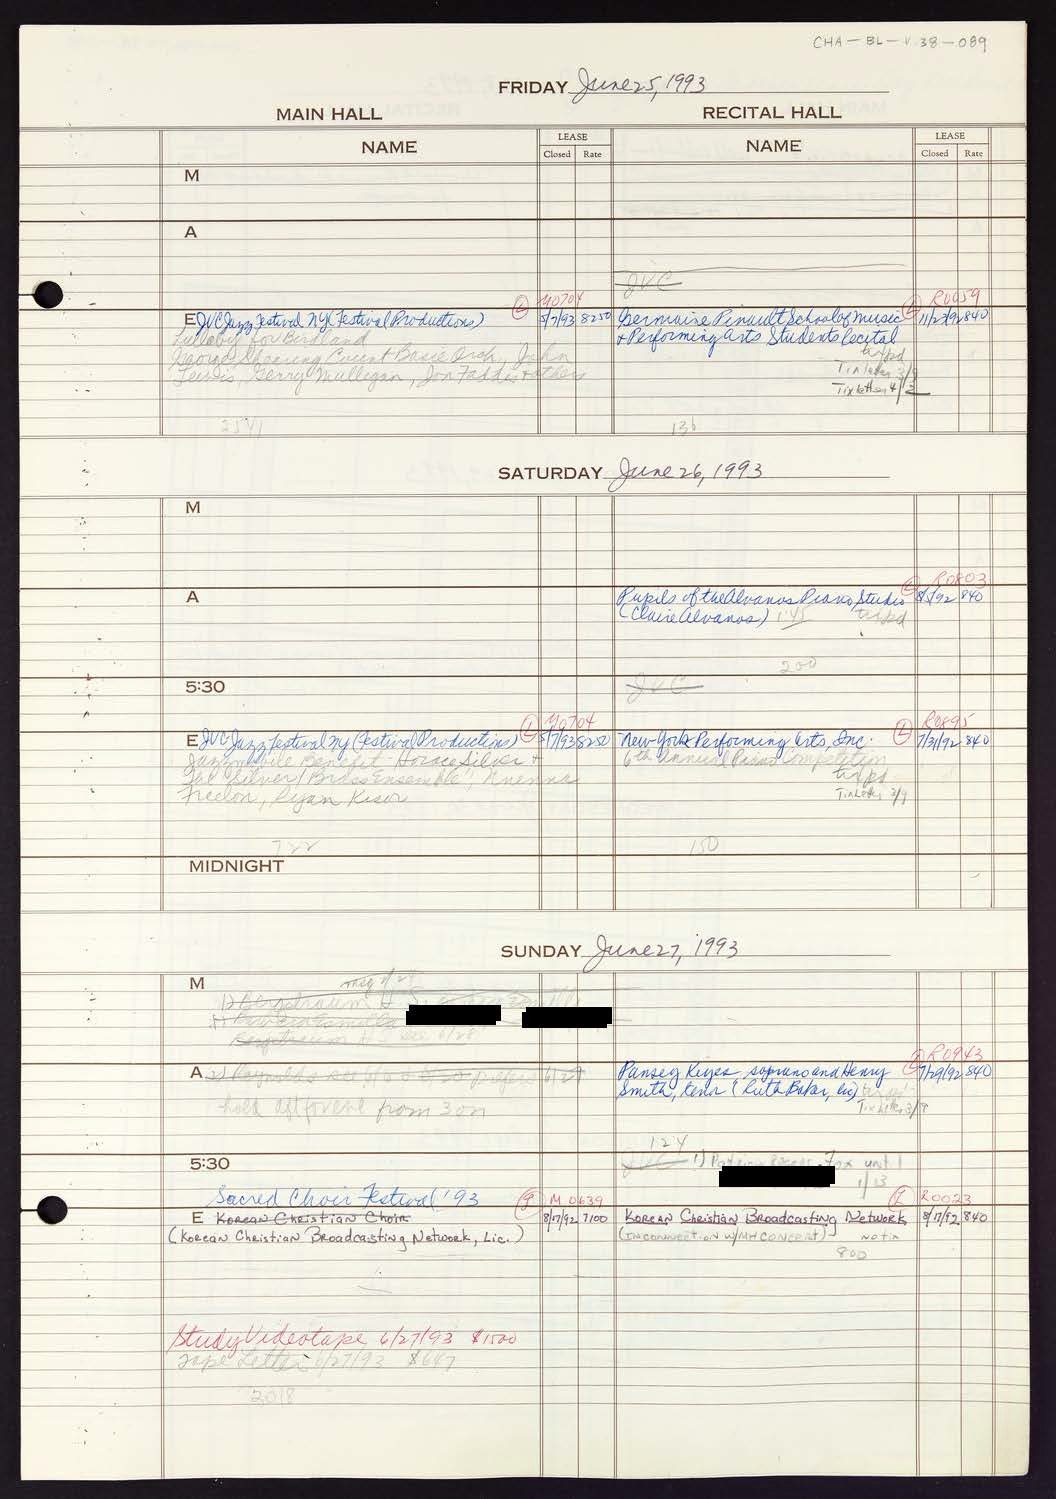 CHA-BL-V.38-089
FRIDAY June 25, 1993
MAIN HALL
RECITAL HALL
NAME
LEASE
Closed Rate
NAME
LEASE
Closed Rate
M
A
JVC
M0704
R0059
E JVC Jazz Festival NY (Festival Productions) 5/7/93 8250
Lullaby for Birdland
George Shearing, Count Basie Orch., John
Lewis, Gerry Mulligan, Jon Faddis + others
2541
Germaine Pinault School of Music 840
& Performing Arts Students Recital
typed
Tix letter 3/9
Tix letter 4/
136
SATURDAY June 26, 1993
M
A
R0803
Pupils of the Alvanos Piano Studio 8/5/92 840
(Claire Alvanos) 1:45 typed
200
5:30
JVC
M0704
R0895
E JVC Jazz Festival NY (Festival Productions) L 5/7/93 8250
Jazzmobile Benefit - Horace Silver +
The Silver/Brass Ensemble, Nnenna
Freelon, Ryan Kisor
722
New York Performing Arts, Inc. L 7/31/92 840
6th Annual Piano Competition
typed
Tix Letter 3/9
150
MIDNIGHT
SUNDAY June 27, 1993
M
1) Bergtraum H.S.
A
hold aft for eve from 3 on
R0943
Pansey Keyes soprano and Henry 7/29/92 840
Smith, tenor (Ruth Baker, )
Tix Letter 3/9
124
5:30
JVC
1) until
1/13
Sacred Choir Festival '93
M0639
R0023
E Korean Christian Choir 8/17/92 7100
(Korean Christian Broadcasting Network, Inc.)
Korean Christian Broadcasting Network 8/17/92 840
(IN CONNECTION W/MH CONCERT) no tix
800
Study Videotape 6/27/93 $1500
Tape Letter 6/27/93 $647
2018